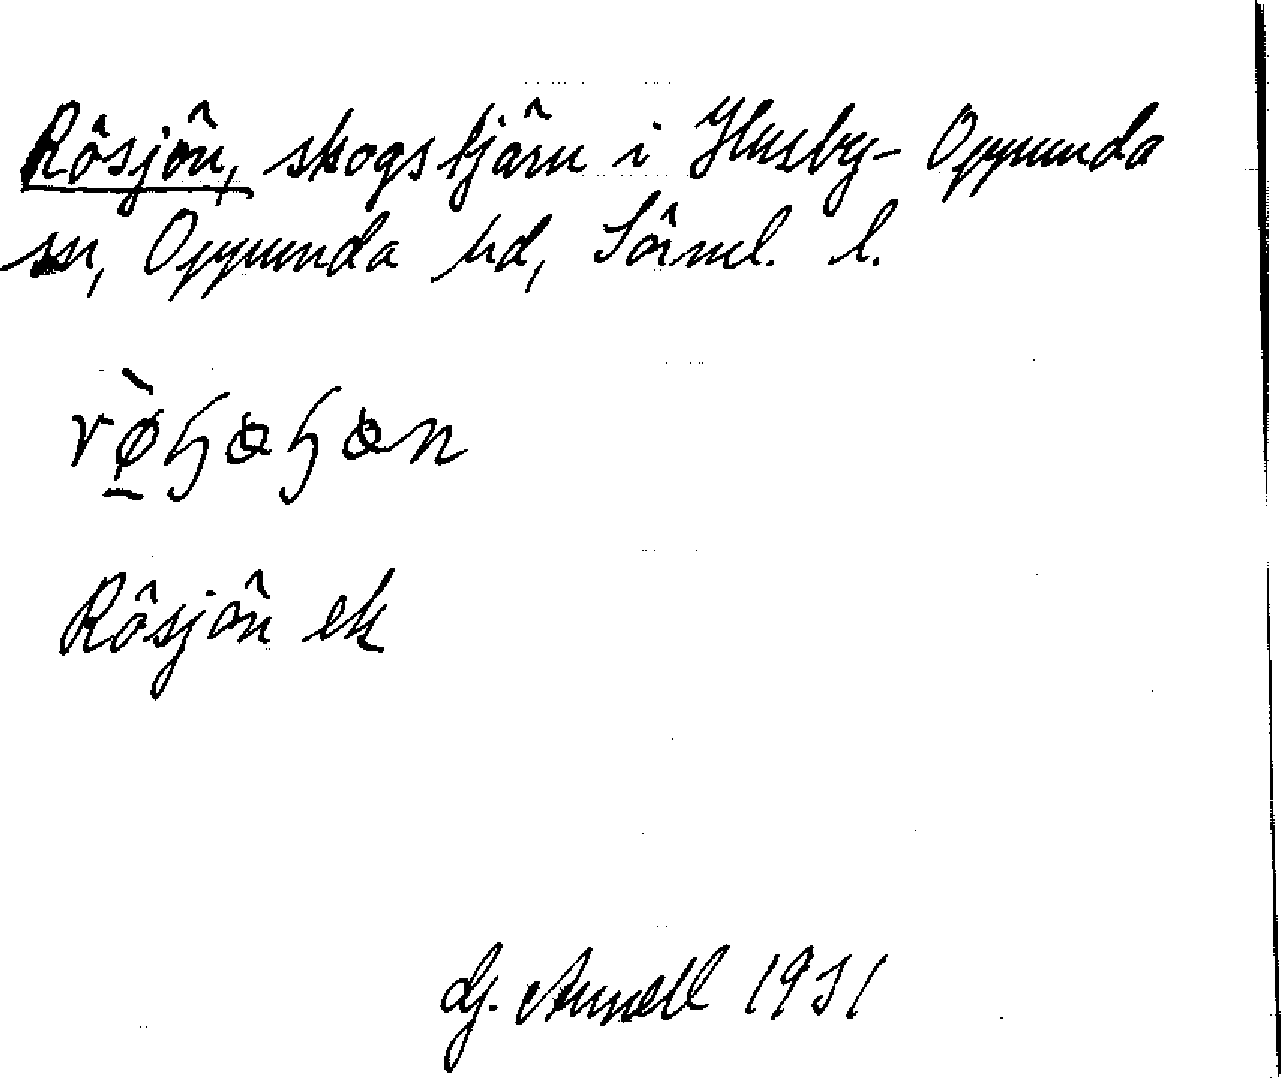 Rösjön, skogstjärn i Husby-Oppunda
sn, Oppunda hd, Sörml. l.
Rösjön ek
Arnell 1931